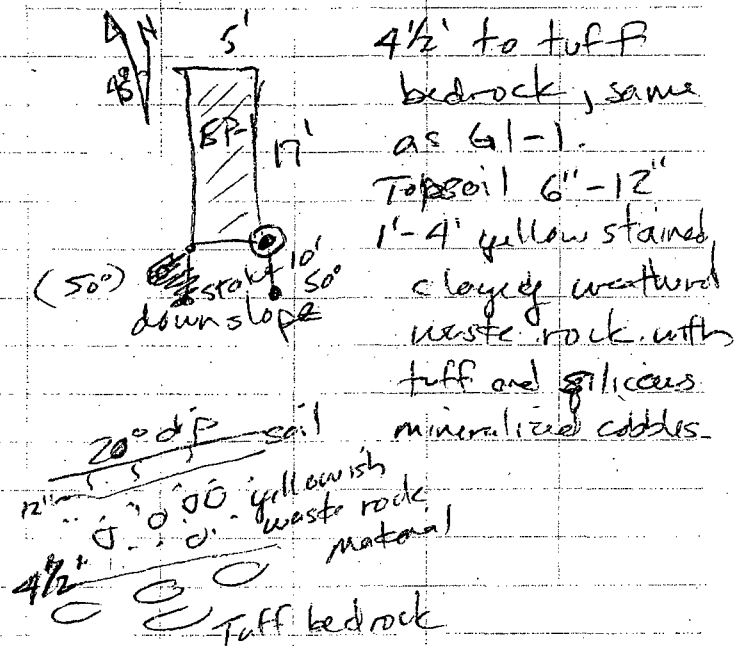 N
5'
48°
BP-1
17'
(50°) start 10' 50°
downslope
4 1/2' to tuff
bedrock, same
as G1-1.
Topsoil 6"-12"
1'-4' yellow stained
clayey weathered
waste rock with
tuff and siliceous
mineralized cobbles.
20° dip soil
12"
yellowish
waste rock
material
4 1/2'
Tuff bedrock